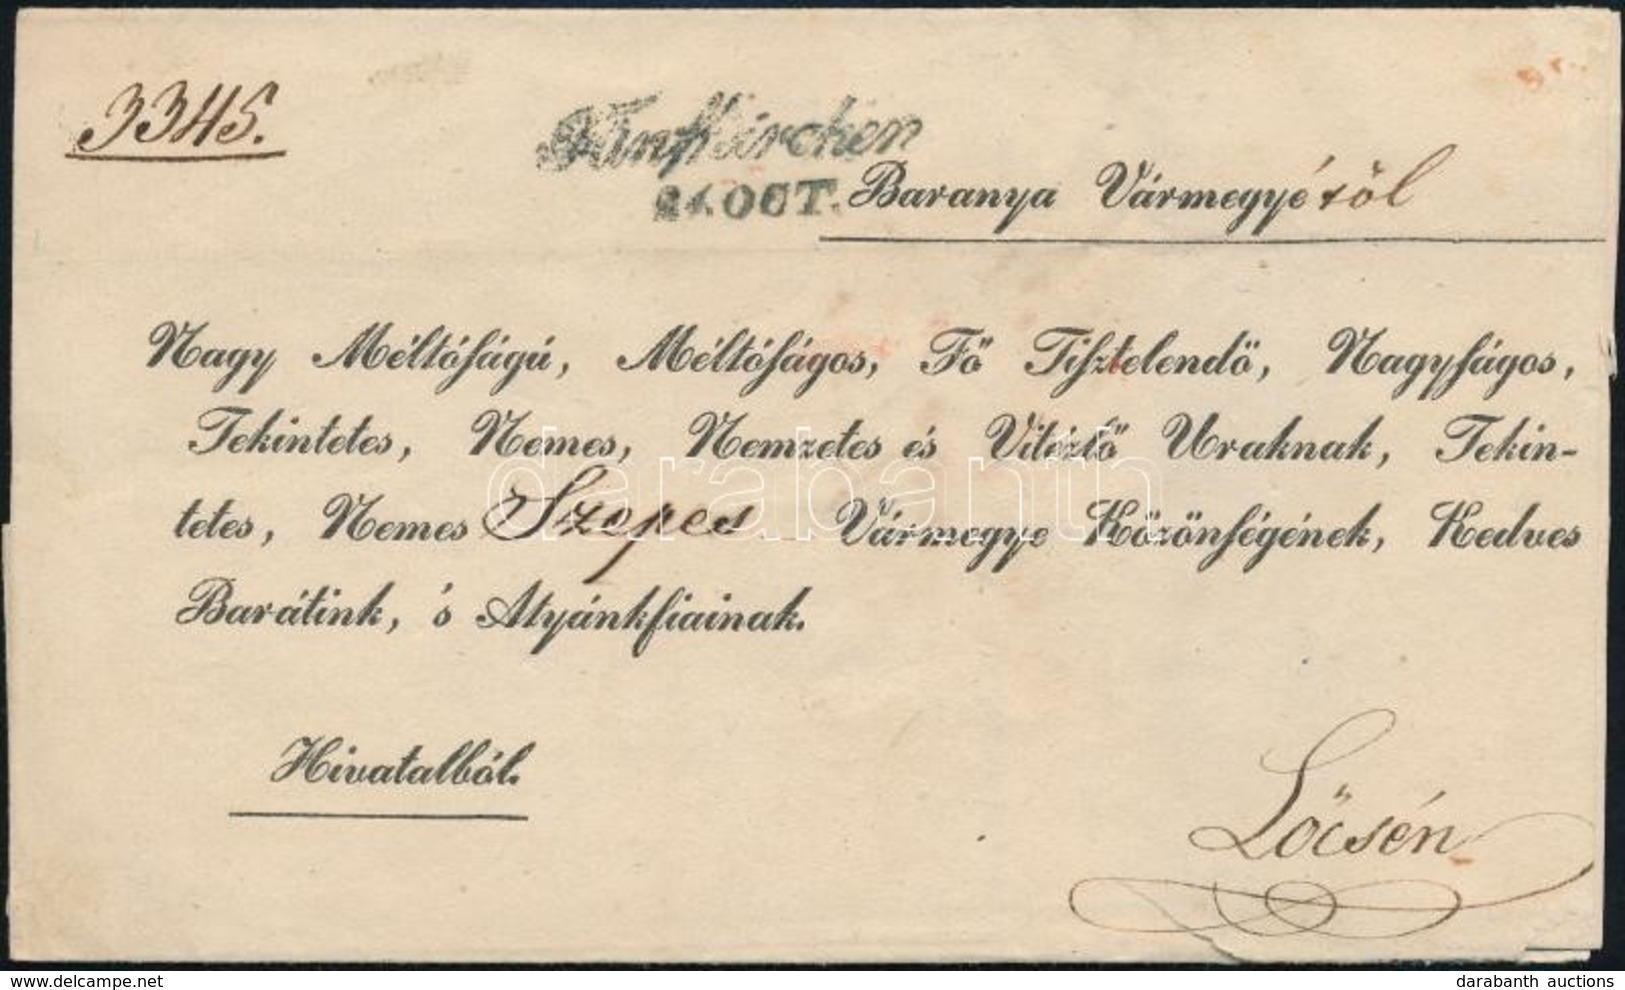 3345.
Fünfkirchen
24.OCT.
Baranya Vármegyétöl
Nagy Méltóságú, Méltóságos, Fő Tisztelendő, Nagyságos,
Tekintetes, Nemes, Nemzetes és Vitézlő Uraknak, Tekin-
tetes, Nemes Szepes Vármegye Közönségének, Kedves
Barátink, 's Atyánkfiainak.
Hivatalból.
Lőcsén
darabanth
delcampe.net
darabanth auctions